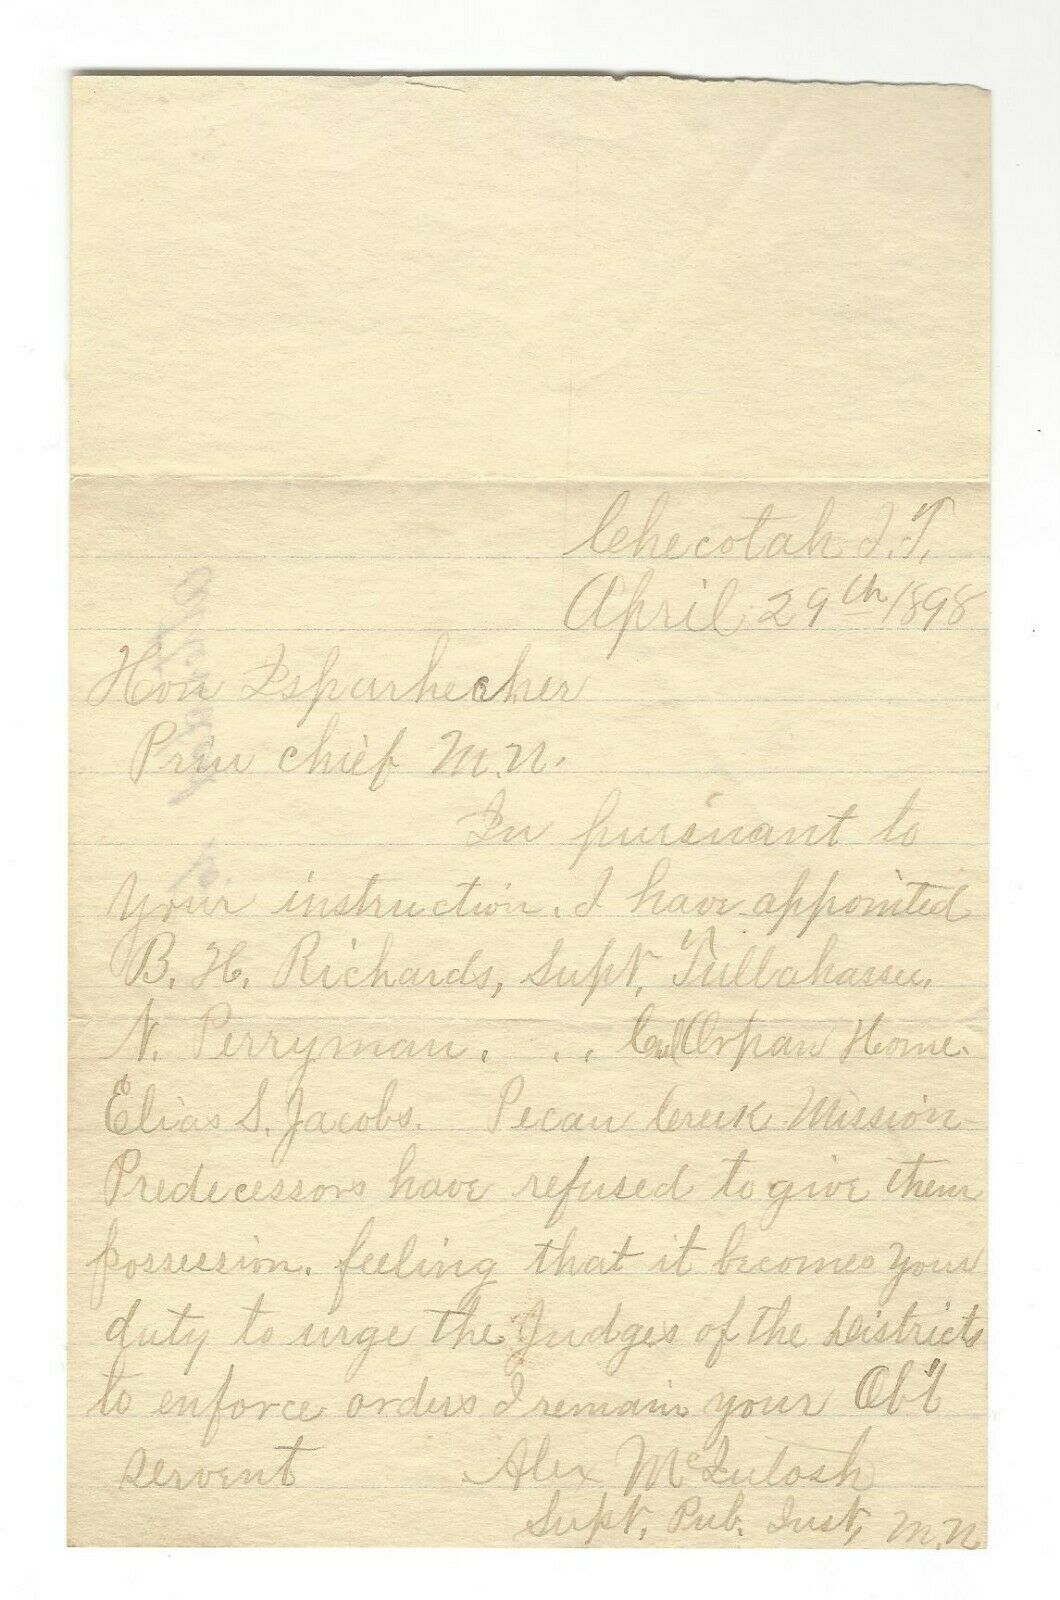 Checotah I.T.
April 29th 1898
Hon Isparhecher
Prin chief M.N.
In pursuant to
your instruction. I have appointed
B. H. Richards, Supt. Tullahassee.
N. Perryman. . . Col Orpan Home.
Elias S. Jacobs. Pecan Creek Mission
Predecessors have refused to give them
possession. feeling that it becomes your
duty to urge the Judges of the Districts
to enforce orders I remain your Obt
servent Alex McIntosh
Supt. Pub. Inst, M.N.